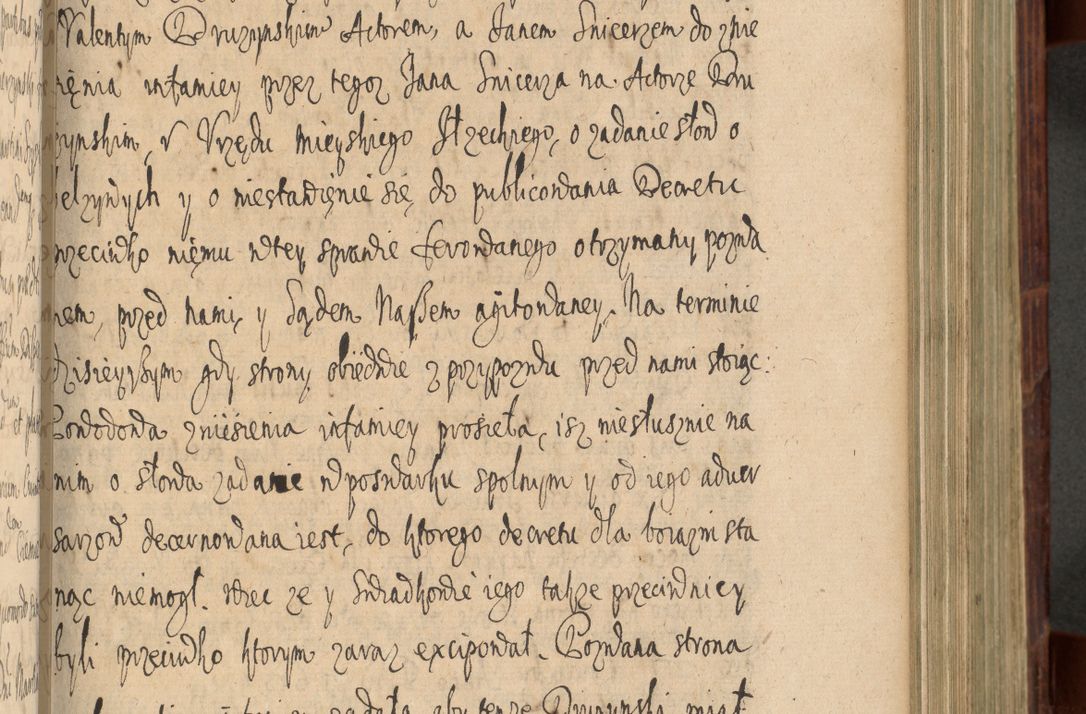 Valentym Druzynskim Actorem, a Janem Snicerzem do znie
sięnia infamiey przez tegoz Jana Snicerza na Actorze Dru
zynskim, v Vrzędu mieyskiego Iłzeckiego, o zadanie słow o
belzywych y o niestawięnie się do publicowania Decretu
przeciwko nięmu w tey sprawie ferowanego otrzymany pozwa
nem, przed nami y Sądem Naszem agitowaney. Na terminie
dzisieyszym gdy strony obiedwie z przypozwu przed nami stoiąc:
Powodowa zniesienia infamiey prosieła, isz niesłusznie na
nim o słowa zadanie w poswarku spolnym y od iego adwer
sarzow decernowana iest, do ktorego decretu dla boiazni sta
nąc niemogł. Wiec ze y Swiadkowie iego takze przeciwnicy
byli przeciwko ktorym zaraz excipował. Pozwana strona
zadała aby tenze Druzynski miał